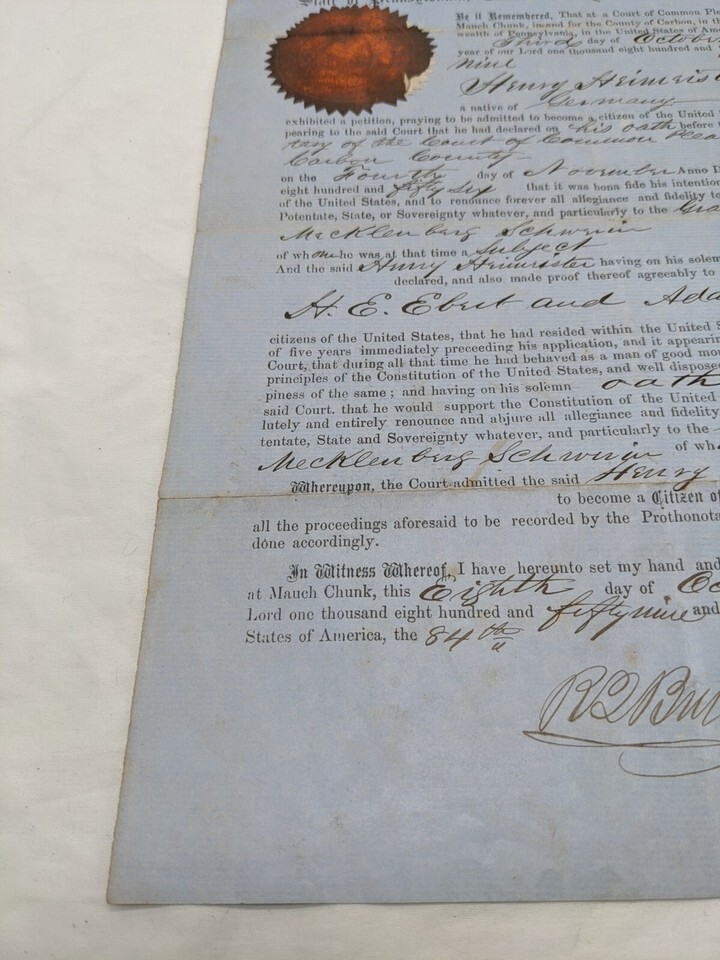 State of Pennsylvania,
Be it Remembered, That at a Court of Common Ple
Mauch Chunk, in and for the County of Carbon, in th
wealth of Pennsylvania, in the United States of Ame
Third day of October
year of our Lord one thousand eight hundred and
nine
Henry Heimeis
a native of Germany
exhibited a petition, praying to be admitted to become a citizen of the United
pearing to the said Court that he had declared on his oath before
tary of the Court of Common Plea
Carbon County
on the Fourth day of November Anno D
eight hundred and fifty six that it was bona fide his intentio
of the United States, and to renounce forever all allegiance and fidelity to
Potentate, State, or Sovereignty whatever, and particularly to the Gra
Mecklenberg Schwerin
of whom he was at that time a Subject
And the said Henry Heimrister having on his solem
declared, and also made proof thereof agreeably to
H. E. Ebert and Ada
citizens of the United States, that he had resided within the United S
of five years immediately preceeding his application, and it appearin
Court, that during all that time he had behaved as a man of good mo
principles of the Constitution of the United States, and well dispose
piness of the same; and having on his solemn oath
said Court. that he would support the Constitution of the United
lutely and entirely renounce and abjure all allegiance and fidelity
tentate, State and Sovereignty whatever, and particularly to the
Mecklenberg Schwerin of wh
Whereupon, the Court admitted the said Henry
to become a Citizen of
all the proceedings aforesaid to be recorded by the Prothonota
done accordingly.
In Witness Whereof, I have hereunto set my hand and
at Mauch Chunk, this Eighth day of Oc
Lord one thousand eight hundred and fifty nine and
States of America, the 84th